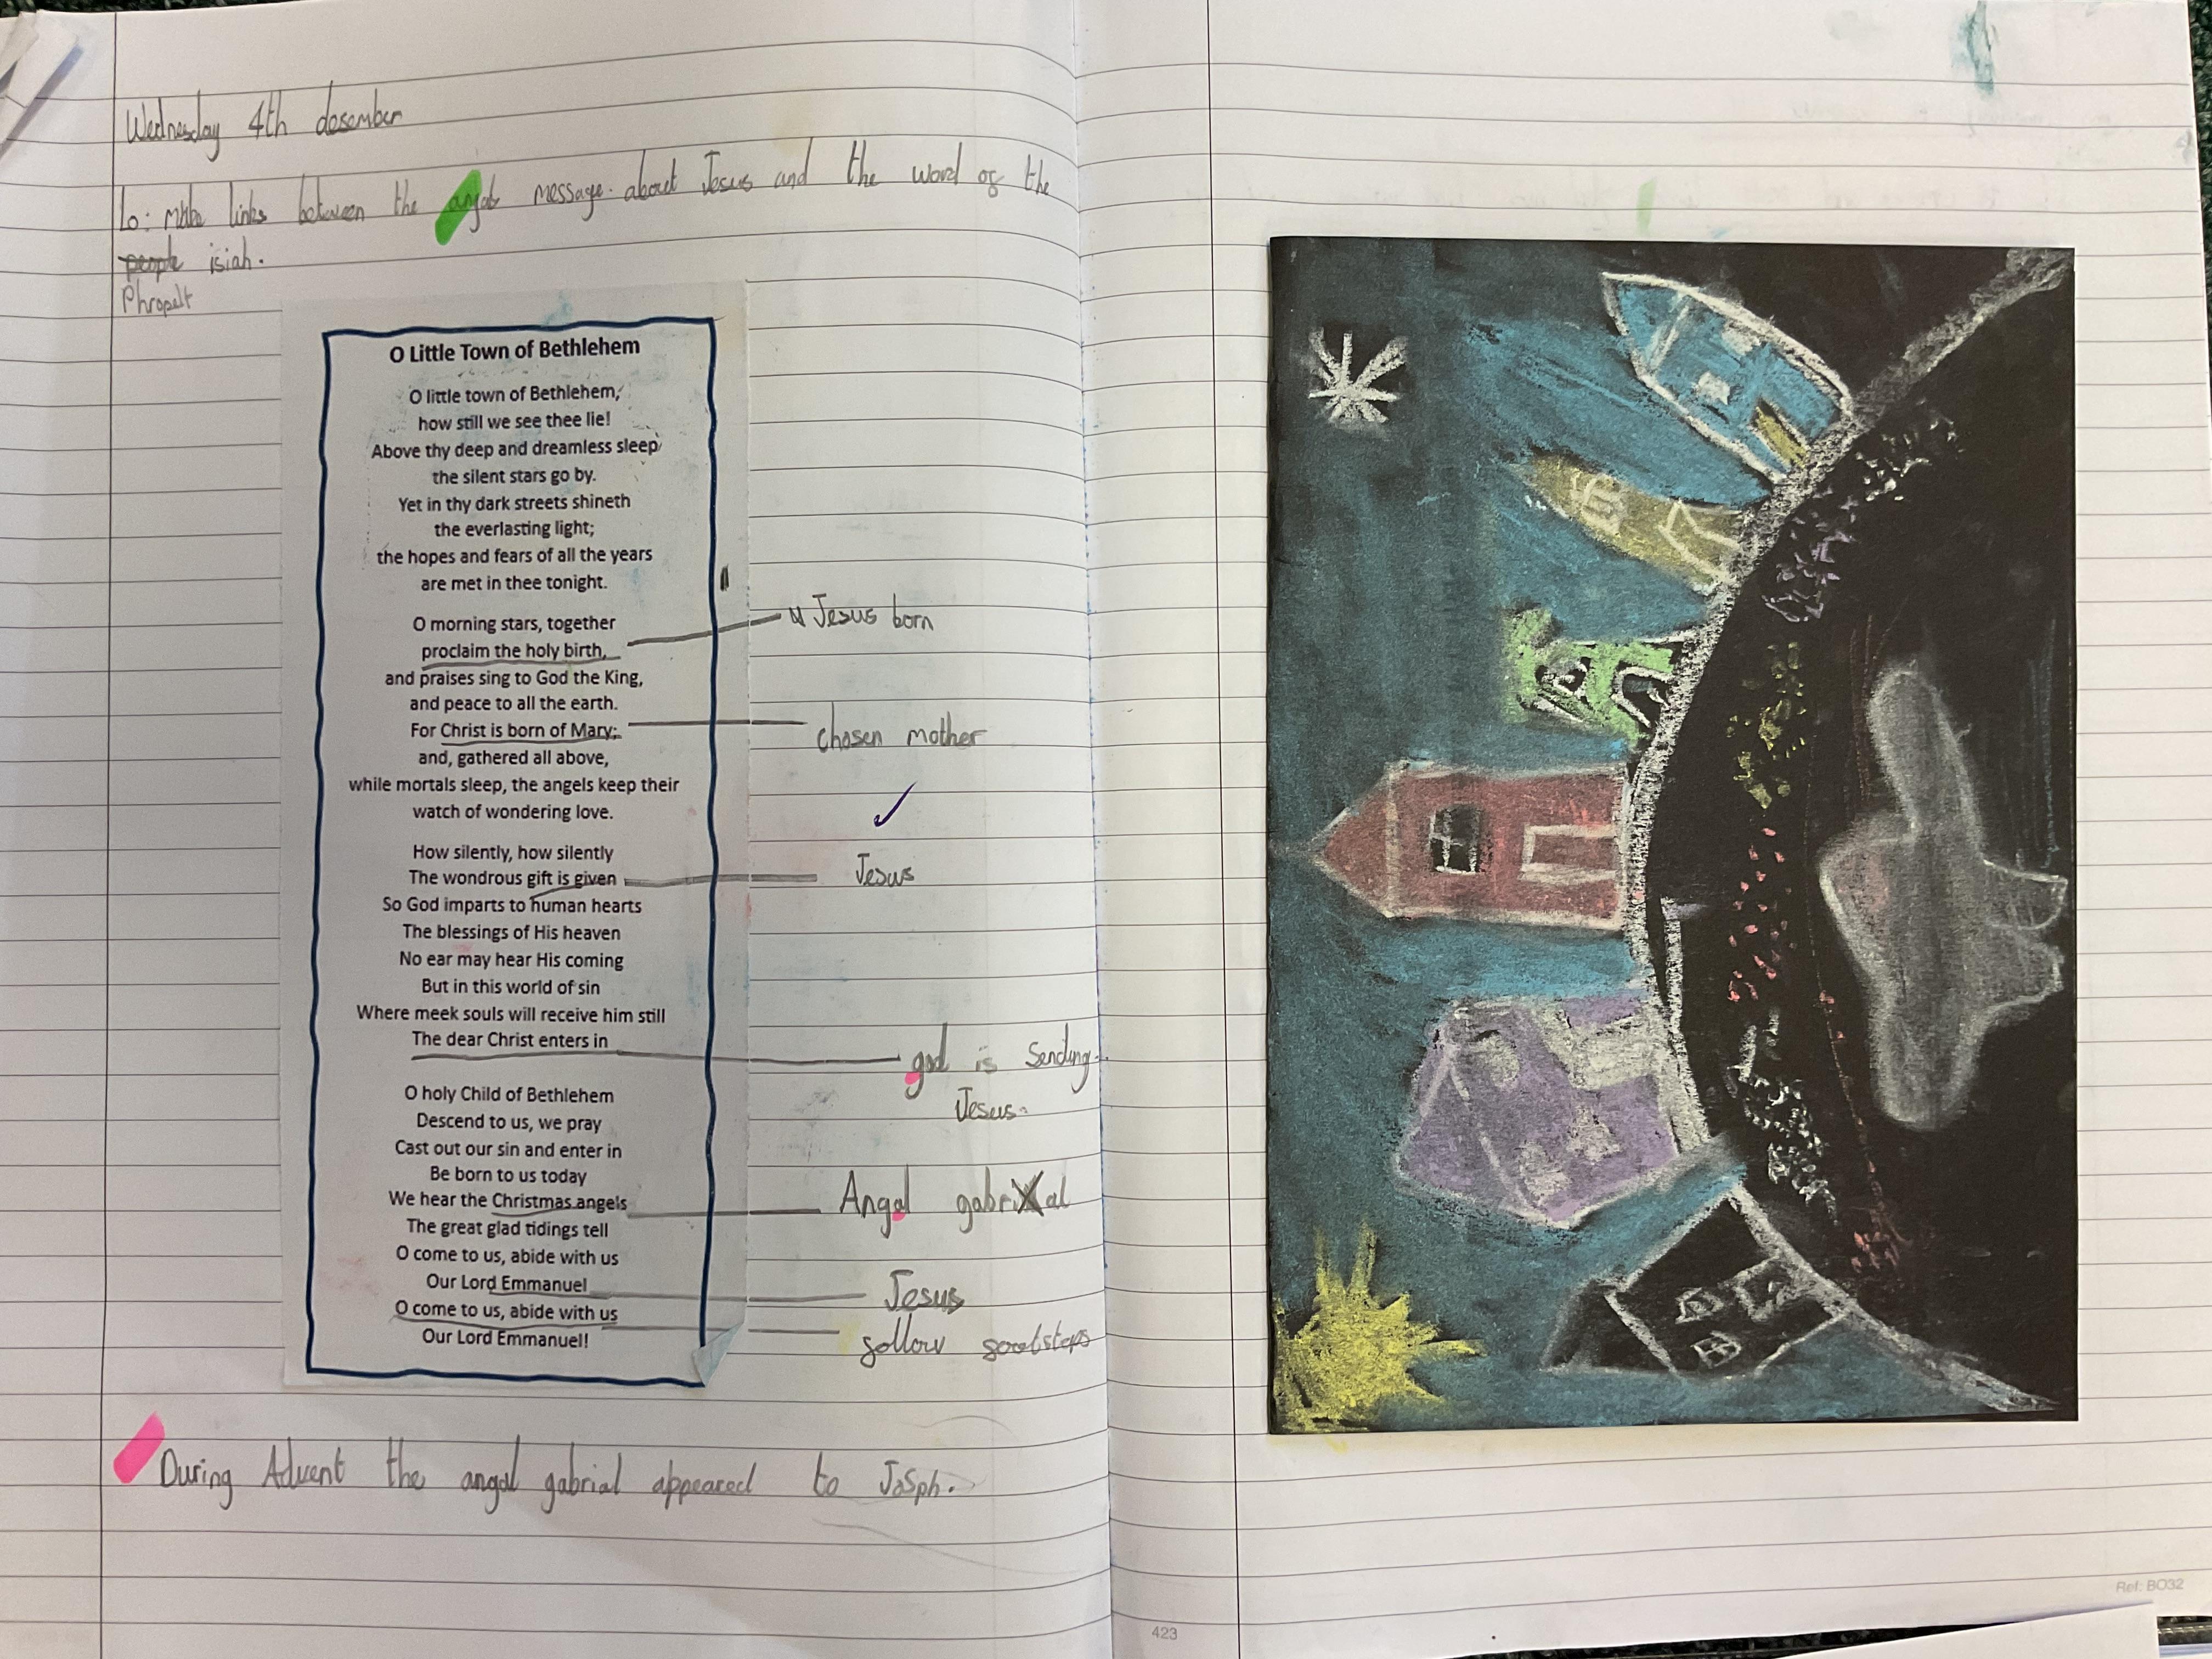 Wednesday 4th desember
Lo: make links between the angel message. about Jesus and the word of the
people isiah.
Phropelt
O Little Town of Bethlehem
O little town of Bethlehem,
how still we see thee lie!
Above thy deep and dreamless sleep
the silent stars go by.
Yet in thy dark streets shineth
the everlasting light;
the hopes and fears of all the years
are met in thee tonight.
O morning stars, together
proclaim the holy birth,
Jesus born
and praises sing to God the King,
and peace to all the earth.
For Christ is born of Mary;
chosen mother
and, gathered all above,
while mortals sleep, the angels keep their
watch of wondering love.
How silently, how silently
The wondrous gift is given
Jesus
So God imparts to human hearts
The blessings of His heaven
No ear may hear His coming
But in this world of sin
Where meek souls will receive him still
The dear Christ enters in
god is sending
Jesus.
O holy Child of Bethlehem
Descend to us, we pray
Cast out our sin and enter in
Be born to us today
We hear the Christmas angels
Angal gabrial
The great glad tidings tell
O come to us, abide with us
Our Lord Emmanuel
Jesus
O come to us, abide with us
follow footsteps
Our Lord Emmanuel!
During Advent the angal gabrial appeared to Josph.
423
Ref: BO32